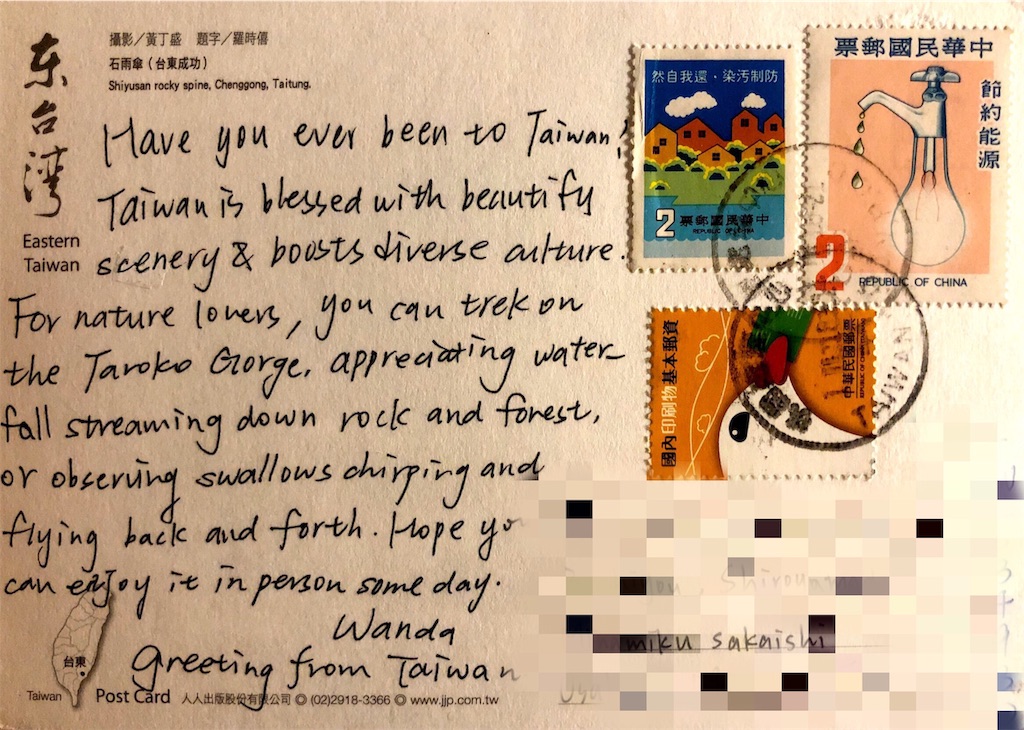 东台灣
Eastern
Taiwan
攝影／黃丁盛 題字／羅時僖
石雨傘（台東成功）
Shiyusan rocky spine, Chenggong, Taitung.
Have you ever been to Taiwan?
Taiwan is blessed with beautify
scenery & boosts diverse culture.
For nature lovers, you can trek on
the Taroko Gorge, appreciating water-
fall streaming down rock and forest,
or observing swallows chirping and
flying back and forth. Hope yo
can enjoy it in person some day.
Wanda
Greeting from Taiwan
台東
Taiwan
Post Card 人人出版股份有限公司 ◎ (02)2918-3366 ◎ www.jjp.com.tw
然自我還・染污制防
2 票郵國民華中
REPUBLIC OF CHINA
票郵國民華中
節約能源
2
REPUBLIC OF CHINA
國內印刷物基本郵資
中華民國郵票
TAIWAN
miku sakaishi